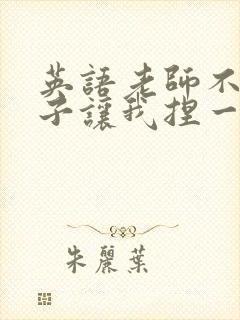 英語老師不
子讓我捏一
朱麗葉